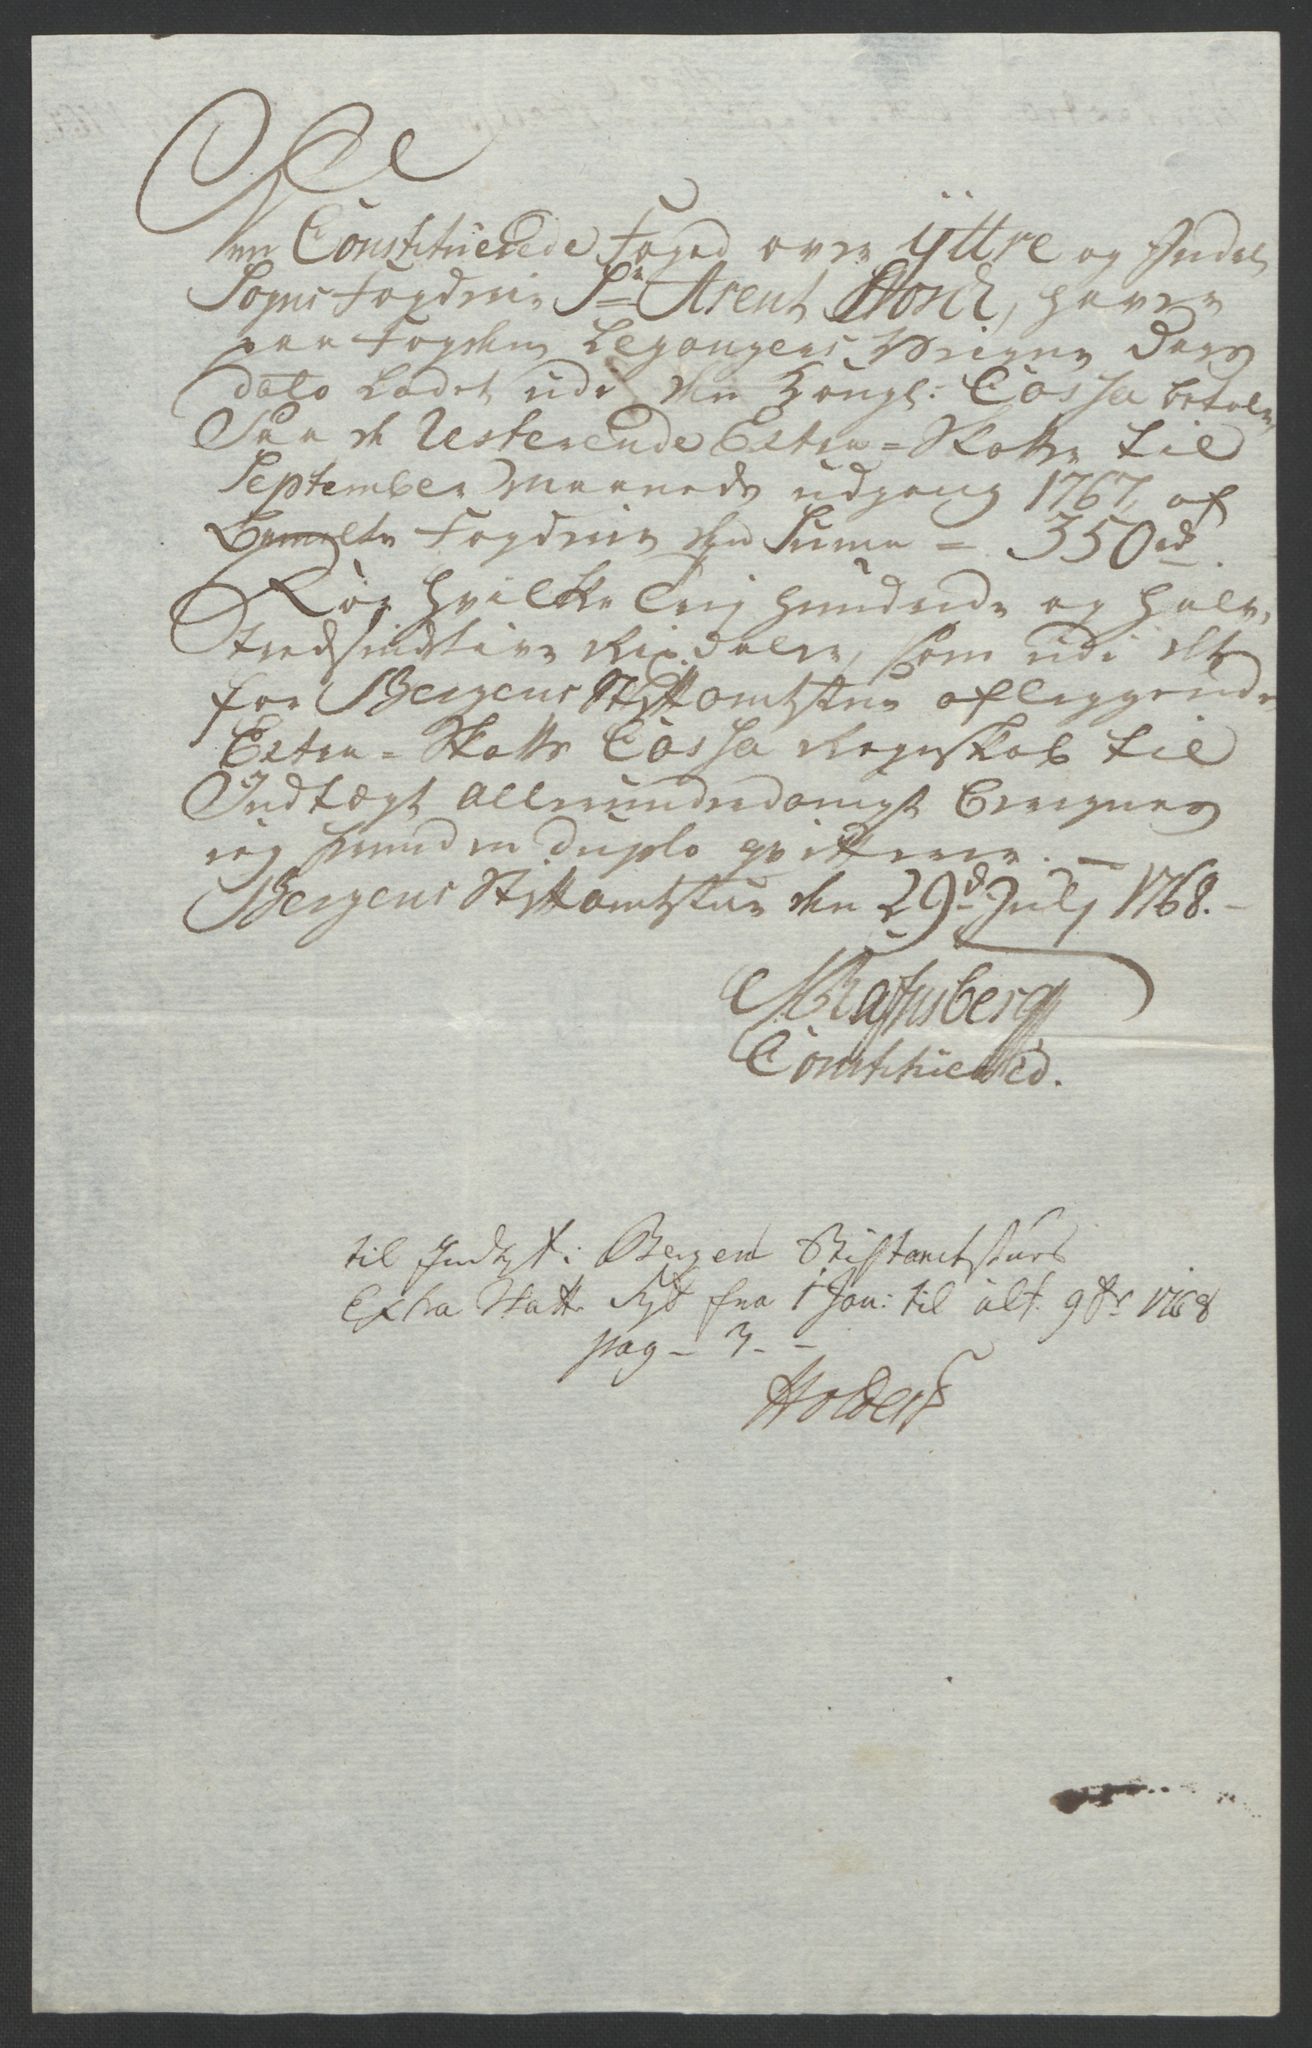 Den Constituerede Foged over ÿttre og Indre
Sogns Fogderie Sr Arent Horck, haver
paa Fogden Leganger Weigne Dags
dato Ladet udi den Kongl: Cassa betale,
Paa de Resterende Extra=Skatter til
September Maaneds udgang 1767, af
Bemelte Fogderie den Suma = 350 rd.
For hvilke Treij hundrede og halv,
tredsindstive Rixdaler, som udi det
for Bergens Stiftamtstue aflæggende
Extra=Skatts Cassa Regnskab til
Indtægt allerunderdanigst Beregnes
ieg herved in duplo qvitterer. —
Bergens Stiftamtstue den 29d Julÿ 1768. –
Constitueered.
til Indtægt i Bergens Stiftamtstues
Extra Skatte Rgb fra 1 Jan: til ult. 9br 1768
pag – 3 – –